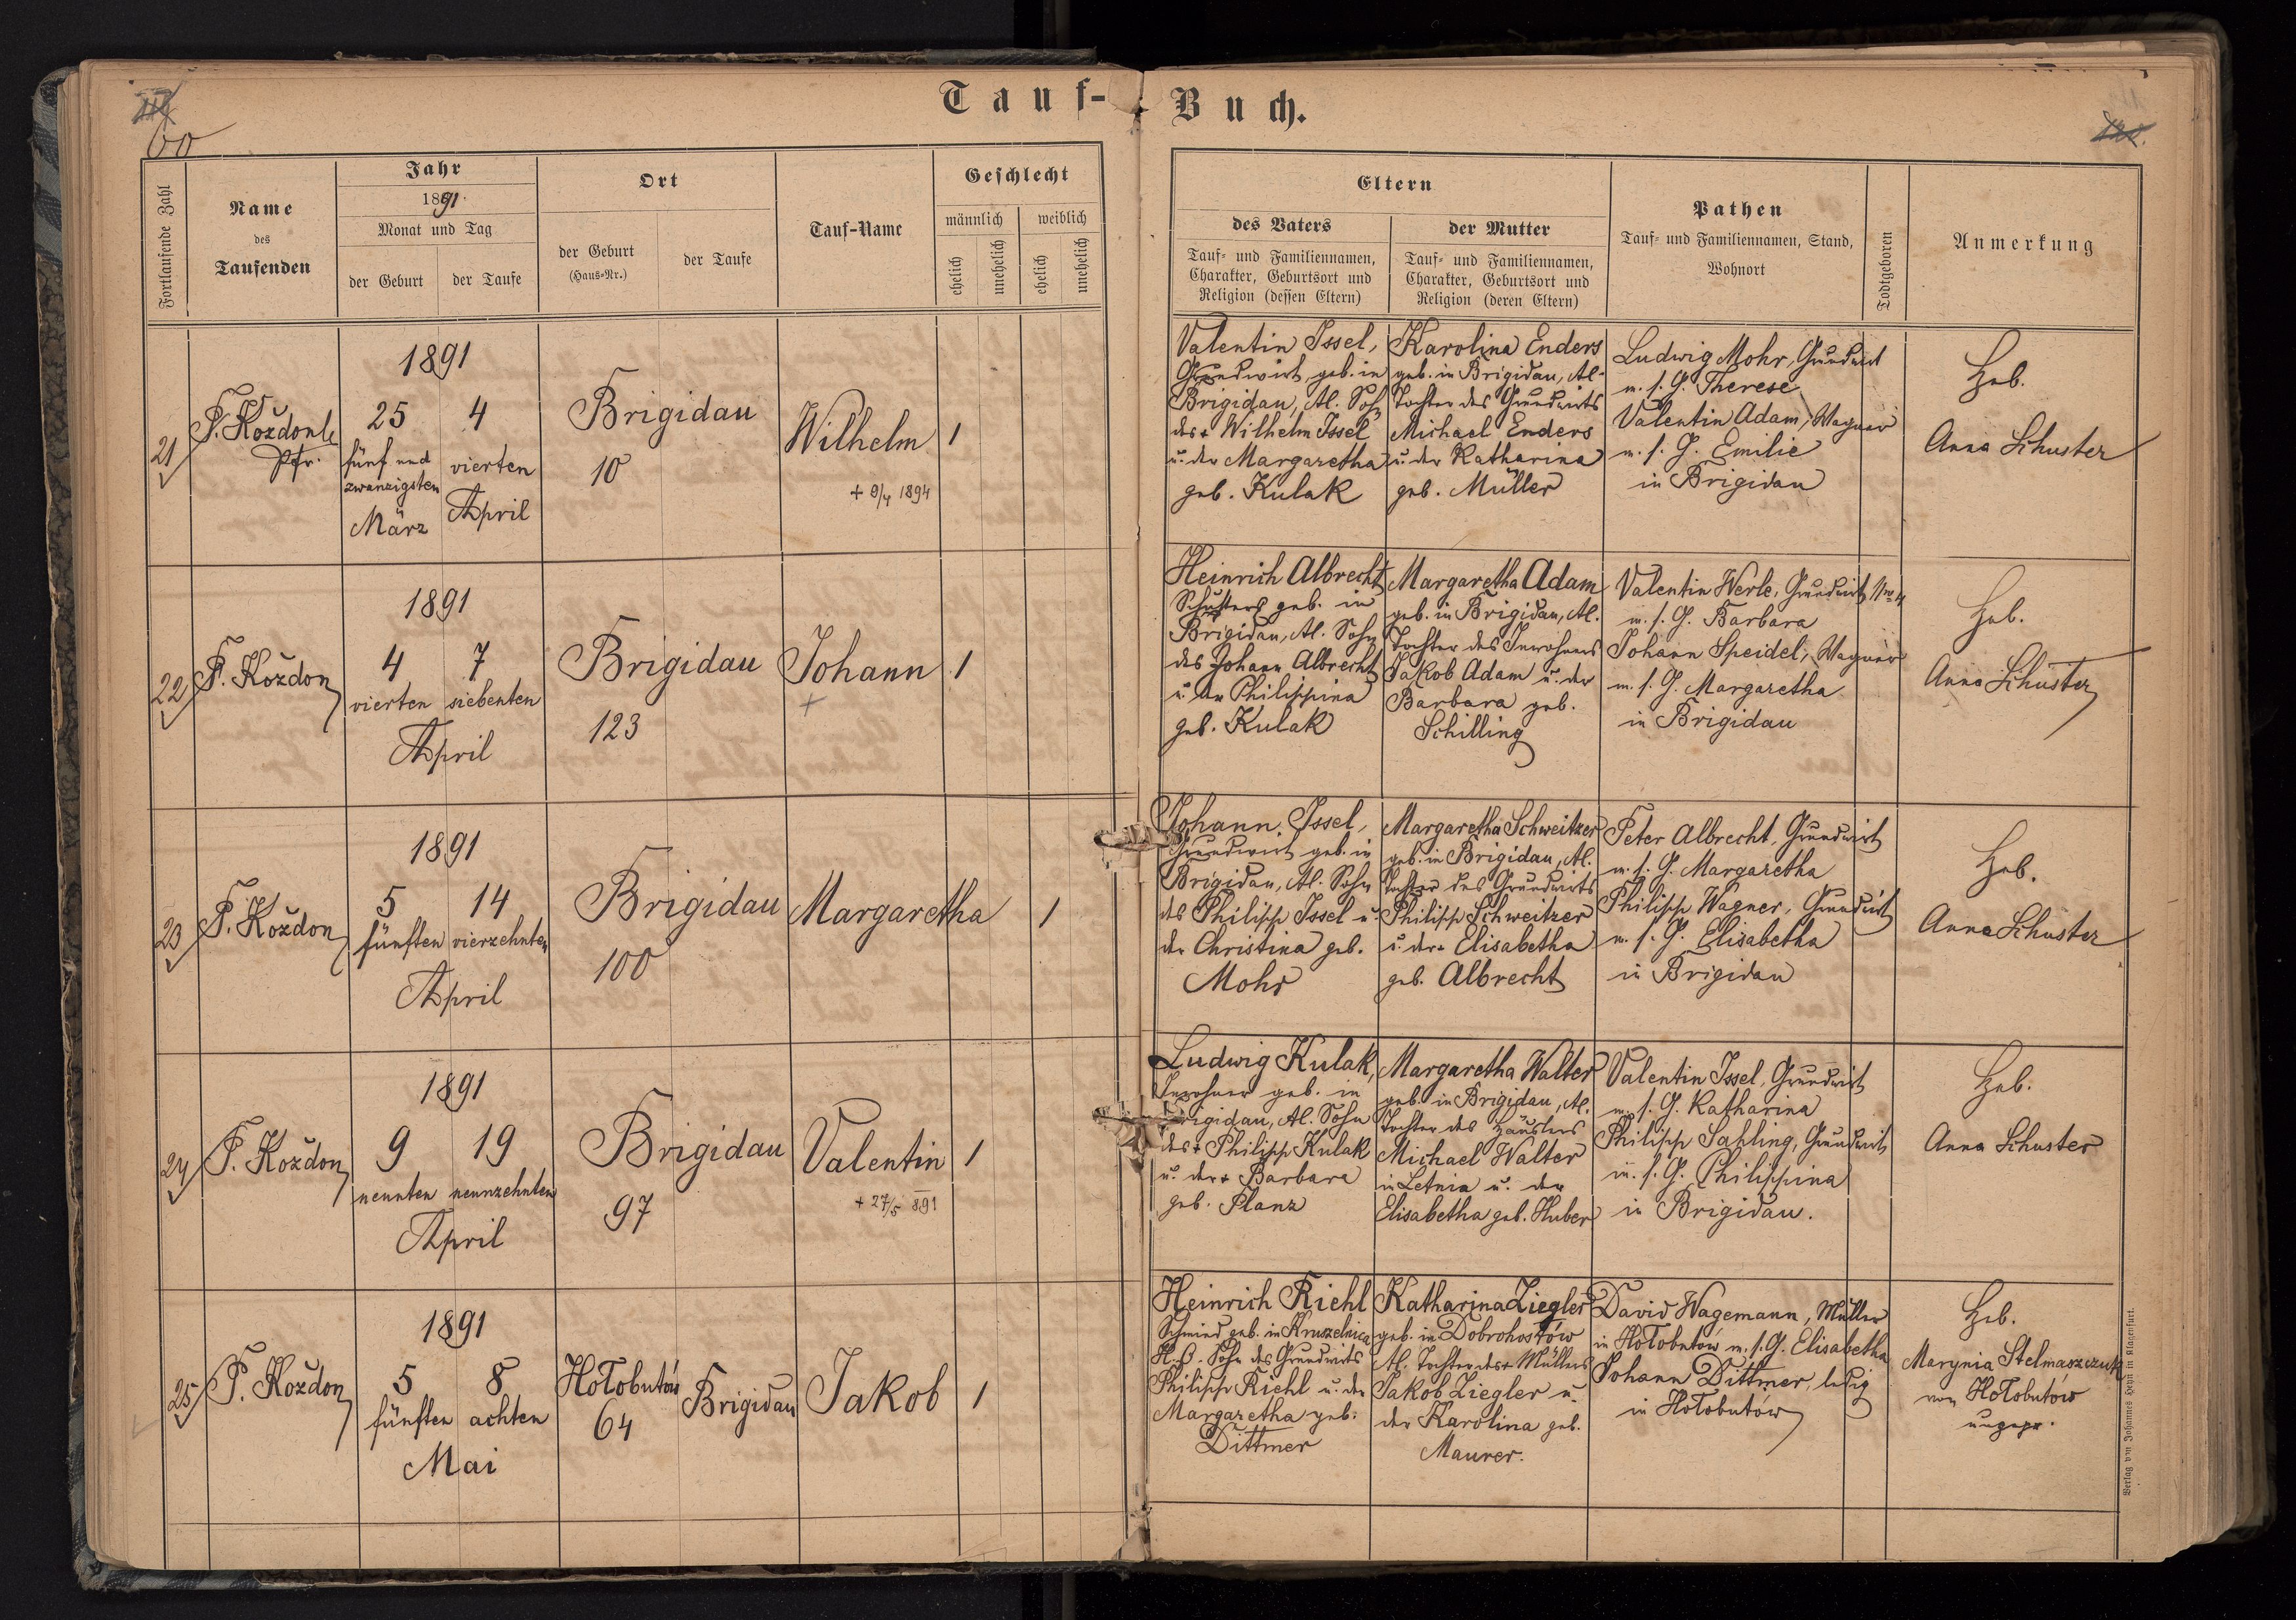 Tauf-
Buch.
60
Fortlaufende Zahl
Name
des
Taufenden
Jahr
1891.
Monat und Tag
der Geburt
der Taufe
Ort
der Geburt
(Haus-Nr.)
der Taufe
Tauf-Name
Geschlecht
männlich
weiblich
ehelich
unehelich
ehelich
unehelich
Eltern
des Vaters
Tauf- und Familiennamen,
Charakter, Geburtsort und
Religion (dessen Eltern)
der Mutter
Tauf- und Familiennamen,
Charakter, Geburtsort und
Religion (deren Eltern)
Pathen
Tauf- und Familiennamen, Stand,
Wohnort
Todtgeboren
Anmerkung
21
Pfr.
1891
25
4
fünf und
zwanzigsten
März
vierten
April
Brigidau
10
Wilhelm
+ 9/4 1894
1
Valentin Issel,
Grundwirt, geb. in
Brigidau, Al. Sohn
des + Wilhelm Issel
u. der Margaretha
geb. Kulak
Karolina Enders
geb. in Brigidau, Al.
Tochter des Grundwirts
Michael Enders
u. der Katharina
geb. Müller
Ludwig Mohr, Grundwirt
m. s. G. Therese
Valentin Adam, Wagner
m. s. G. Emilie
in Brigidau
Heb.
Anna Schuster
22
P. Koždon
1891
4
7
vierten siebenten
April
Brigidau
123
Johann
+
1
Heinrich Albrecht
Schusters geb. in
Brigidau, Al. Sohn
des Johann Albrecht
u. der Philippina
geb. Kulak
Margaretha Adam
geb. in Brigidau, Al.
Tochter des Inwohners
Jakob Adam u. der
Barbara geb.
Schilling
Valentin Werle, Grundwirt
m. s. G. Barbara
Johann Speidel, Wagner
m. s. G. Margaretha
in Brigidau
Heb.
Anna Schuster
23
P. Koždon
1891
5
14
fünften vierzehnten
April
Brigidau
100
Margaretha
1
Johann Issel,
Grundwirt geb. in
Brigidau, Al. Sohn
des Philipp Issel u.
der Christina geb.
Mohr
Margaretha Schweitzer
geb. in Brigidau, Al.
Tochter des Grundwirts
Philipp Schweitzer
u. der + Elisabetha
geb. Albrecht
Peter Albrecht, Grundwirt
m. s. G. Margaretha
Philipp Wagner, Grundwirt
m. s. G. Elisabetha
in Brigidau
Heb.
Anna Schuster
24
P. Koždon
1891
9
19
neunten neunzehnten
April
Brigidau
97
Valentin
+ 27/5 891
1
Ludwig Kulak,
Inwohner geb. in
Brigidau, Al. Sohn
des + Philipp Kulak
u. der + Barbara
geb. Planz
Margaretha Walter
geb. in Brigidau, Al.
Tochter des Häuslers
Michael Walter
in Letnia u. der
Elisabetha geb. Huber
Valentin Issel, Grundwirt
m. s. G. Katharina
Philipp Sahling, Grundwirt
m. s. G. Philippina
in Brigidau.
Heb.
Anna Schuster
25
P. Koždon
1891
5
8
fünften achten
Mai
Hołobutów
64
Brigidau
Jakob
1
Heinrich Riehl
Schmied geb. in Kruszelnica
H. B. Sohn des Grundwirts
Philipp Riehl u. der
Margaretha geb.
Dittmer
Katharina Ziegler
geb. in Dobrohostów
Al. Tochter des + Müllers
Jakob Ziegler u.
der Karolina geb.
Maurer.
David Wagemann, Müller
in Hołobutów m. s. G. Elisabetha
Johann Dittmer, ledig
in Hołobutów
Heb.
Marynia Stelmaszczuk
von Hołobutów
ungepr.
Verlag von Johannes Heyn in Klagenfurt.